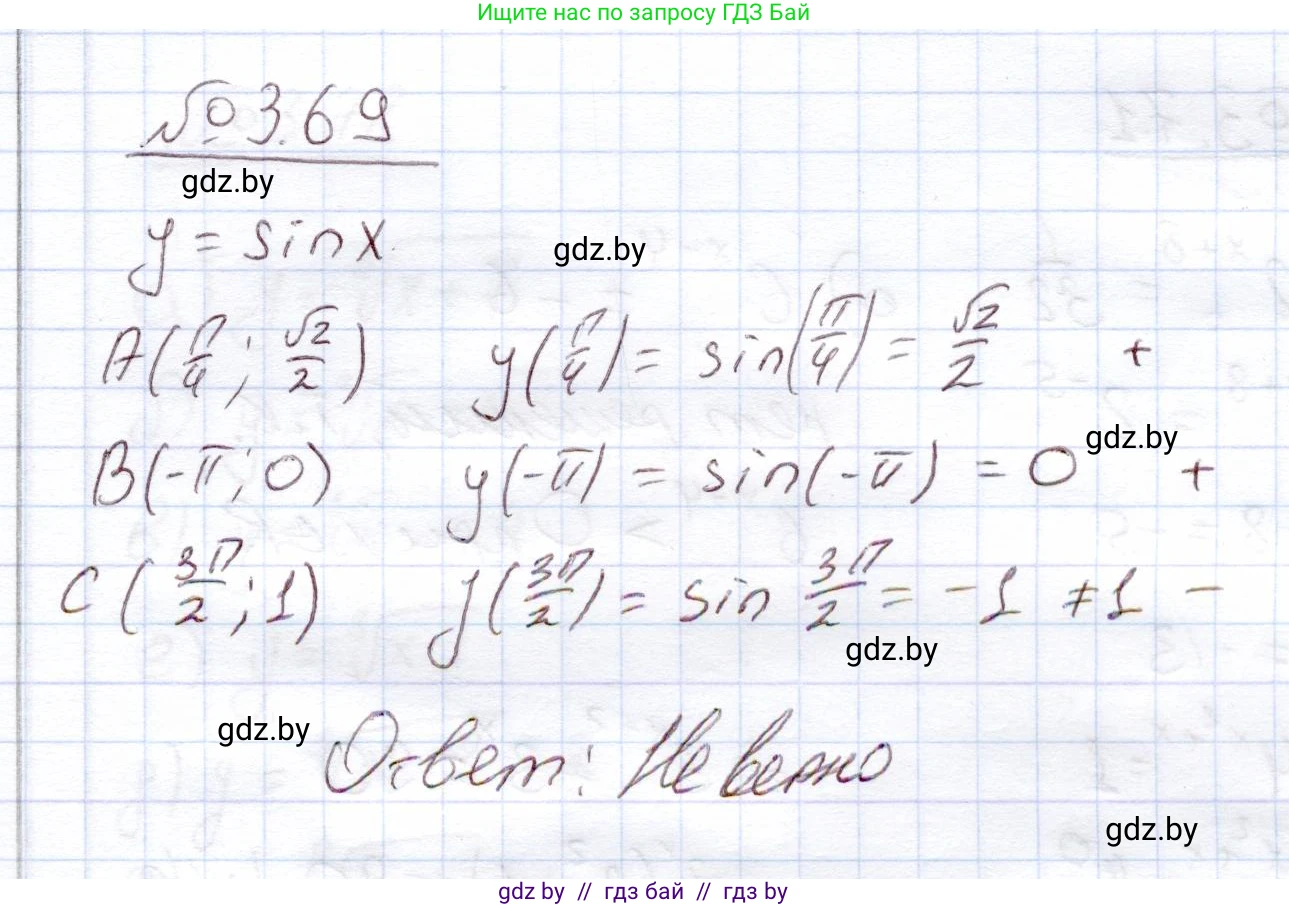 Ищите нас по запросу ГДЗ Бай
№ 3.69
gdz.by
y = sin x
gdz.by
A(π/4; √2/2) y(π/4) = sin(π/4) = √2/2 +
gdz.by
B(-π; 0) y(-π) = sin(-π) = 0 +
C(3π/2; 1) y(3π/2) = sin 3π/2 = -1 ≠ 1 −
gdz.by
gdz.by
Ответ: Неверно
gdz.by
gdz by // гдз бай // гдз by